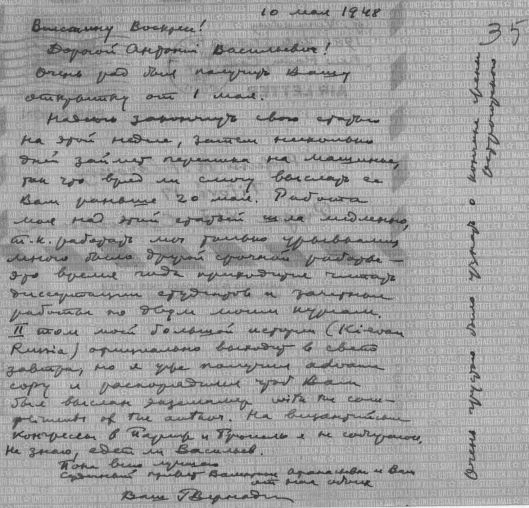 10 мая 1948
35
Воистину Воскрес!
Дорогой Антоний Васильевич!
Очень рад был получить Вашу
открытку от 1 мая.
Надеюсь закончить свою статью
на этой неделе, затем несколько
дней займет переписка на машинке,
так что вряд ли смогу выслать ее
Вам раньше 20 мая. Работа
моя над этой статьей шла медленно,
т.к. работать мог только урывками,
много было другой срочной работы —
это время года приходится читать
диссертации студентов и зачетные
работы по двум моим курсам.
II том моей большой истории (Kievan
Russia) официально выходит в свет
завтра, но я уже получил advance
copy и распорядился чтоб Вам
был выслан экземпляр with the com-
pliments of the author. На византийский
конгресс в Париж и Брюссель я не собираюсь,
не знаю, едет ли Васильев.
Пока всего лучшего
Сердечный привет Вам и
от нас обоих
Ваш Г Вернадский
Очень грустно было узнать о кончине